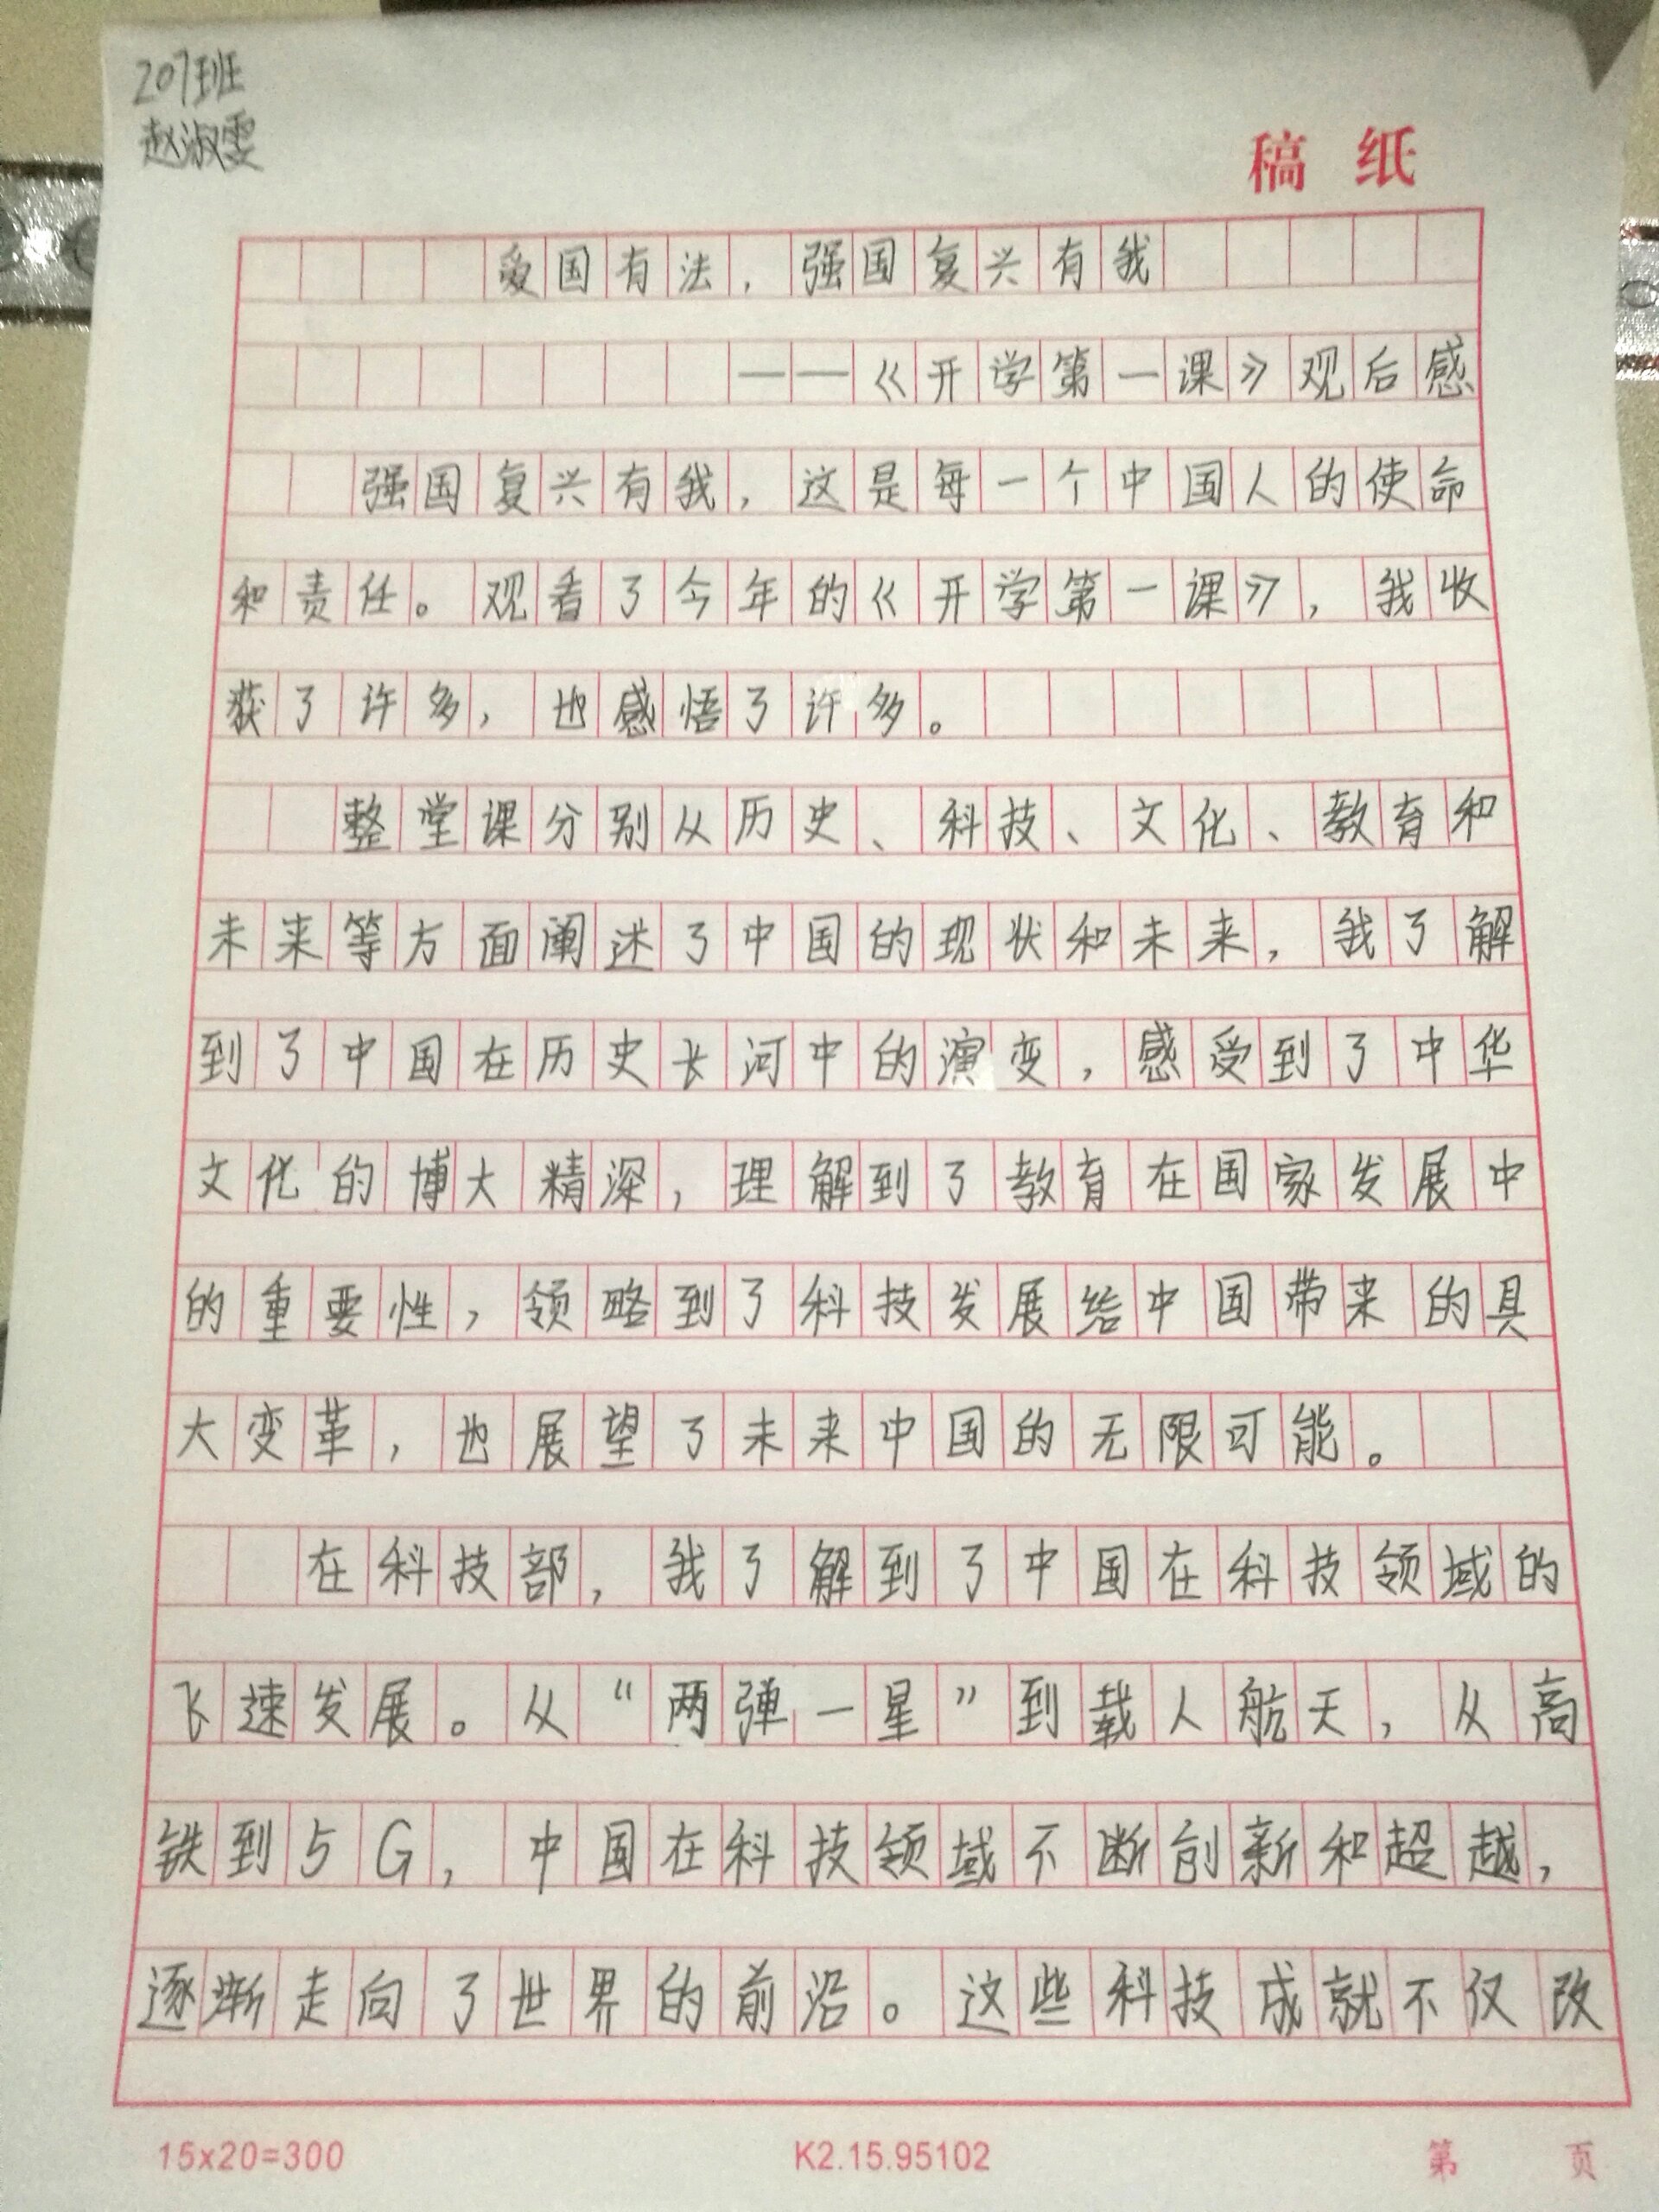 207班
赵淑雯
稿 纸
爱国有法，强国复兴有我
——《开学第一课》观后感
强国复兴有我，这是每一个中国人的使命
和责任。观看了今年的《开学第一课》，我收
获了许多，也感悟了许多。
整堂课分别从历史、科技、文化、教育和
未来等方面阐述了中国的现状和未来，我了解
到了中国在历史长河中的演变，感受到了中华
文化的博大精深，理解到了教育在国家发展中
的重要性，领略到了科技发展给中国带来的具
大变革，也展望了未来中国的无限可能。
在科技部，我了解到了中国在科技领域的
飞速发展。从“两弹一星”到载人航天，从高
铁到5G，中国在科技领域不断创新和超越，
逐渐走向了世界的前沿。这些科技成就不仅改
15x20=300 K2.15.95102 第 页